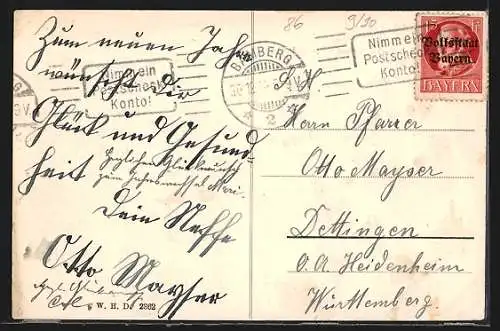 86
9/10
Zum neuen Jahr
wünscht dir
Glück und Gesund-
heit
Herzlichen Glückwunsch
zum Jahreswechsel Marie
Dein Neffe
Otto Mayser
W. H. D. 2862
Nimm ein
Postscheck
Konto!
BAMBERG
2
Nimm ein
Postscheck
Konto!
15
Volksstaat
Bayern
BAYERN
S. H.
Herrn Pfarrer
Otto Mayser
Dettingen
O.A. Heidenheim
Württemberg.